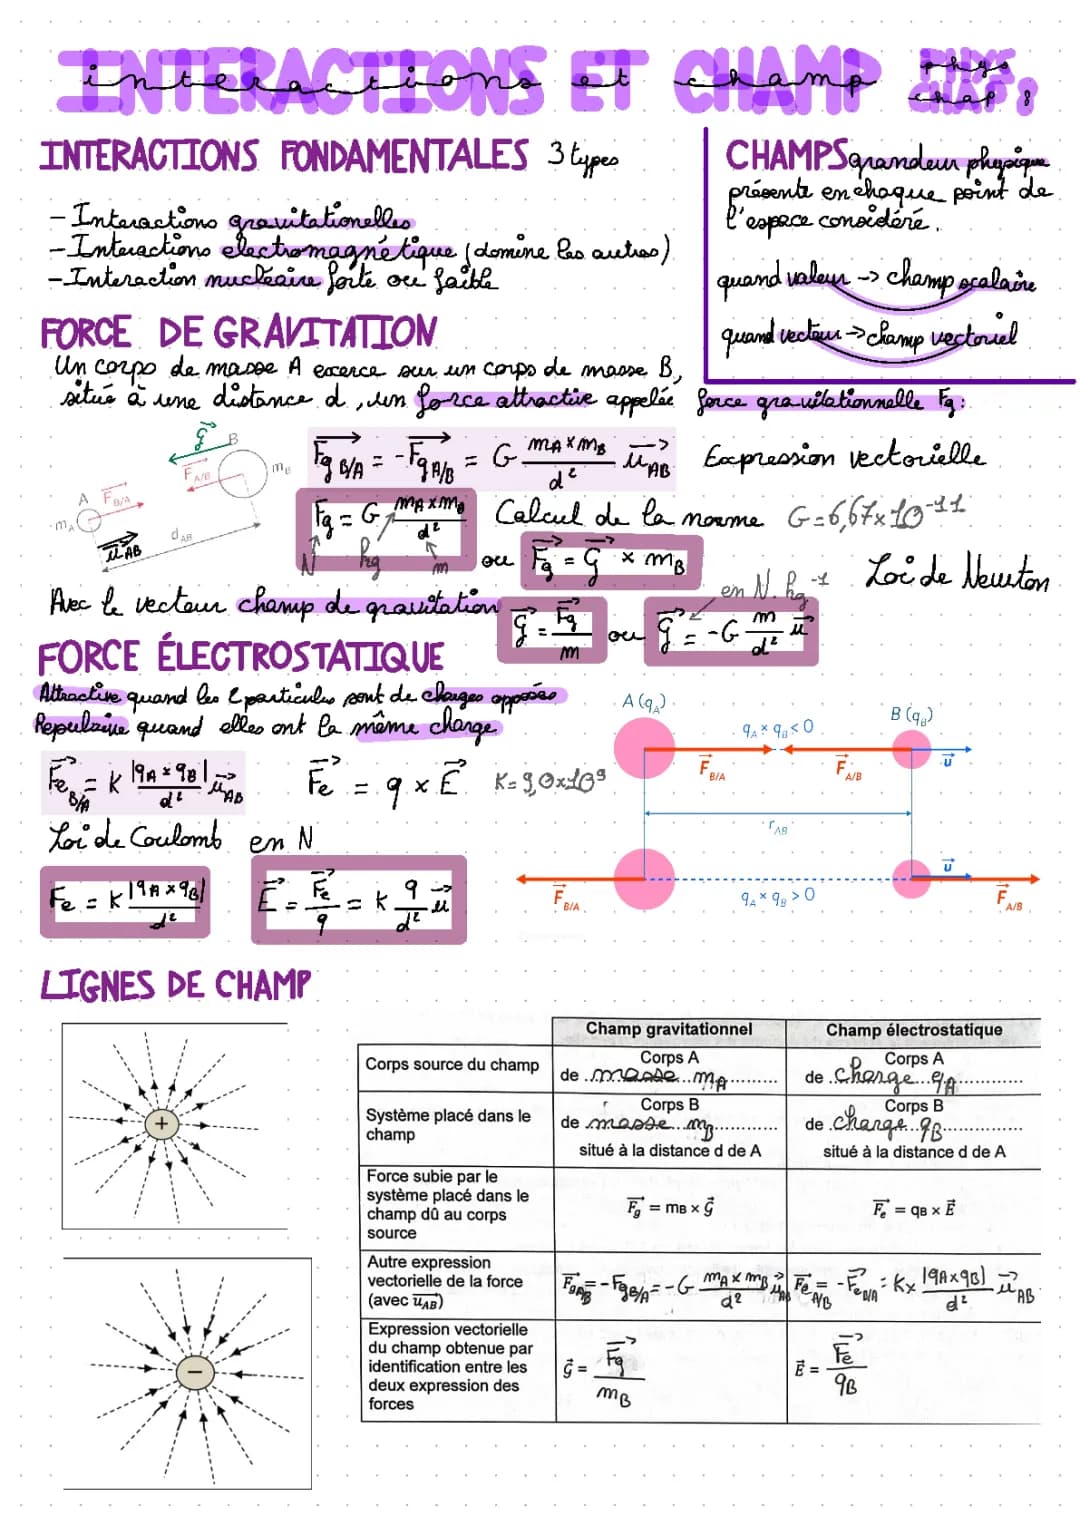 INTERACTIONS ET CHAMP PHYS CHAP 8
interactions et champ phys chap 8
INTERACTIONS FONDAMENTALES 3 types
- Interactions gravitationelles
- Interactions électromagnétique (domine les autres)
- Interaction nucléaire forte ou faible
CHAMPS grandeur physique
présente en chaque point de
l'espace considéré.
quand valeur -> champ scalaire
quand vecteur -> champ vectoriel
FORCE DE GRAVITATION
Un corps de masse A excerce sur un corps de masse B,
situé à une distance d, un force attractive appelée force gravitationnelle Fg :
g⃗ B
F⃗ A/B mB
A F⃗ B/A
mA
dAB
u⃗AB
F⃗g B/A = -F⃗g A/B = G mA × mB / d² u⃗AB Expression vectorielle
Fg = G mA × mB / d² Calcul de la norme G = 6,67×10⁻¹¹
N kg m
ou F⃗g = G⃗ × mB
Loi de Newton
en N.kg⁻¹
Avec le vecteur champ de gravitation G⃗ = F⃗g / m ou G⃗ = -G m / d² u⃗
FORCE ÉLECTROSTATIQUE
Attractive quand les 2 particules sont de charges opposées
Repulsive quand elles ont la même charge
F⃗e B/A = K |qA × qB| / d² u⃗AB F⃗e = q × E⃗ K = 9,0×10⁹
Loi de Coulomb en N
Fe = K |qA × qB| / d² E⃗ = F⃗e / q = K q / d² u⃗
A (qA) B (qB)
qA × qB < 0
F⃗B/A F⃗A/B u⃗
rAB
u⃗
F⃗B/A qA × qB > 0 F⃗A/B
LIGNES DE CHAMP
+
−
Champ gravitationnel Champ électrostatique
Corps source du champ
Corps A
de ..masse..mA..........
Corps A
de .charge..qA..........
Système placé dans le
champ
Corps B
de .masse..mB..........
situé à la distance d de A
Corps B
de .charge..qB..........
situé à la distance d de A
Force subie par le
système placé dans le
champ dû au corps
source
F⃗g = mB × G⃗
F⃗e = qB × E⃗
Autre expression
vectorielle de la force
(avec u⃗AB)
F⃗g A/B = -F⃗g B/A = -G mA × mB / d² u⃗AB
F⃗e A/B = -F⃗e B/A = K × |qA × qB| / d² u⃗AB
Expression vectorielle
du champ obtenue par
identification entre les
deux expression des
forces
G⃗ = F⃗g / mB
E⃗ = F⃗e / qB